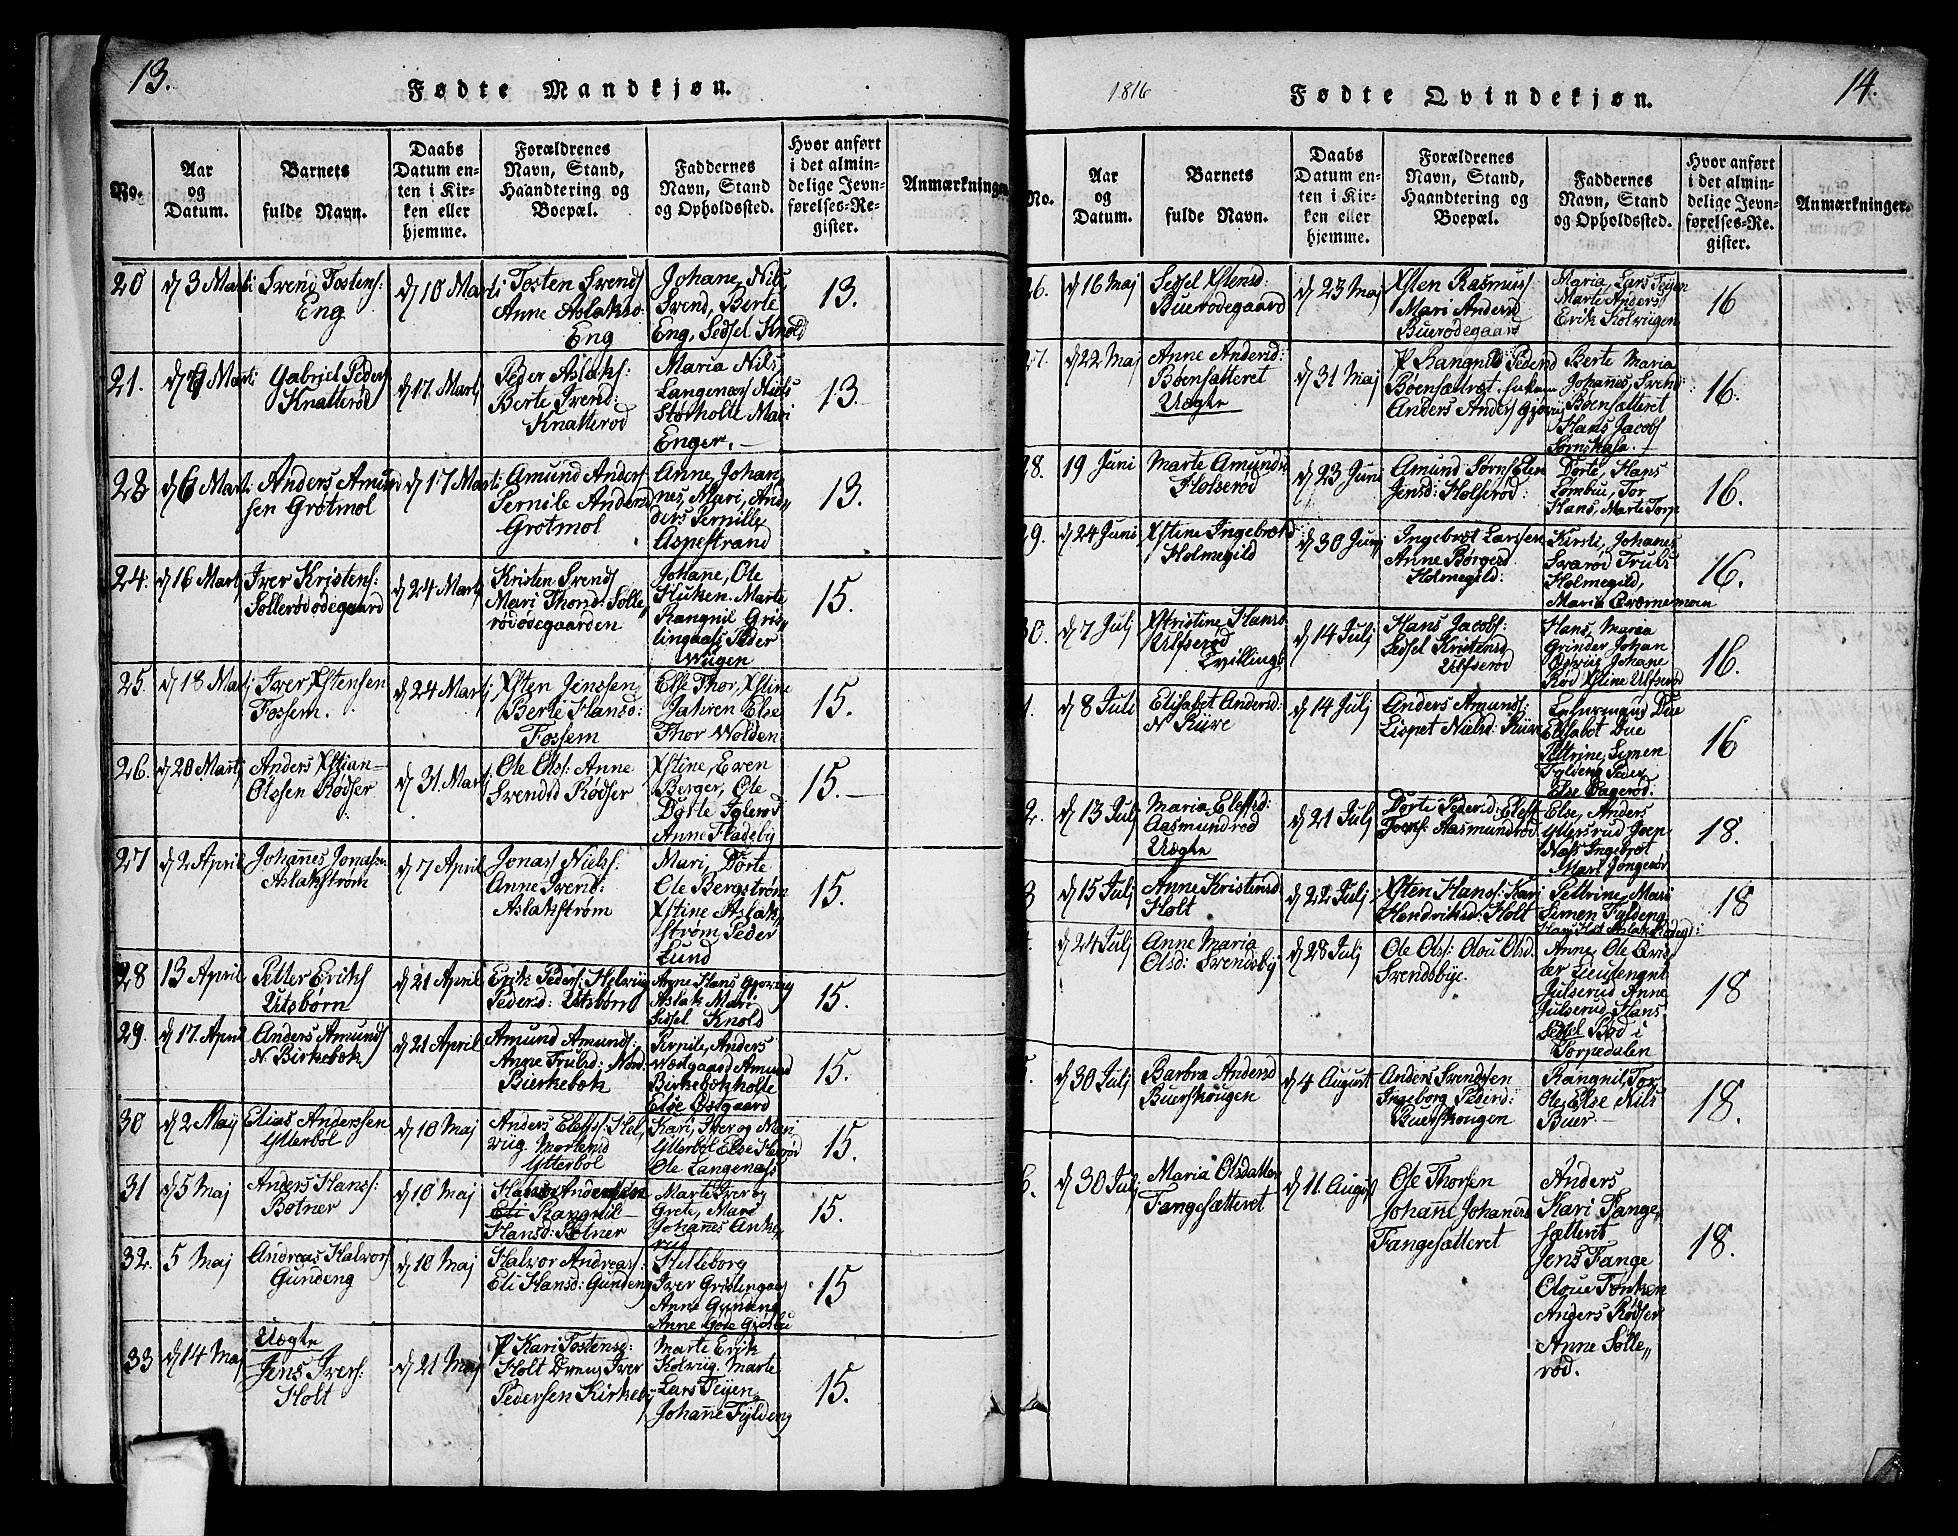 13.
Fødte Mandkjøn.
No.
Aar
og
Datum.
Barnets
fulde Navn.
Daabs
Datum en-
ten i Kir-
ken eller
hjemme.
Forældrenes
Navn, Stand,
Haandtering og
Boepæl.
Faddernes
Navn, Stand
og Opholdssted.
Hvor anført
i det almin-
delige Jevn-
førelses-Re-
gister.
Anmærkninger
20
d 3 Marti
Svend Tostens:
Eng
d 10 Marti
Tosten Svends
Anne Aslaksd
Eng
Johane, Nils,
Svend, Berte
Eng, Sedsel Knold
13.
21.
Gabriel Peders
Knatterød
d 17. Marti
Peder Aslaks:
Berte Svend:
Knatterød
Maria Nils
Langenæs Niels
Storholte Mari
Enger.
13.
d 6 Marti
Anders Amund
sen Grotmol
d 17 Marti
Amund Anders
Pernile Andersd
Grotmol
Anne, Johan
nes, Mari, An
ders Pernille
Aspestrand
13.
24.
d 16 Marti
Iver Kristens:
Sollerødødegaard
d 24 Marti
Kristen Svends
Mari Thord: Solle
rødødegaarden
Johañe, Ole
Huken. Marte
Rangnil Gris
lingaas Peder
Wügen
15.
25.
d 18 Marti
Iver Xstensen
Fossem.
d 24 Marti
Xsten Jenssen
Berte Hansd:
Fossem
Else Thor, Xstine
Jahren Else
Thor Wolden
15.
26.
d 20 Marti
Anders Xstian
Olssen Rødser
d 31. Marti
Ole Ols: Anne
Svendsd Rødser
Xstine, Even
Berger, Ole
Dorte Iglerød
Anne Fladeby
15.
27
d 2 April
Johañes Jonass
Aslakstrøm
d 7 April
Jonas Niels:
Anne Svend:
Aslakstrøm
Mari, Dorte
Ole Bergstrøm
Xstine Aslak
strøm Peder
Lund
15.
28
13 April
Petter Eriks
Utsbørn
d 21 April
Erik Peders: Helvig
Pedersd: Utsbørn
Anne Hans Gjovning
Aslak Mari
Sedsel Knold
15.
29.
d 17. April
Anders Amunds
N Birkebøk
d 21 April
Amund Amunds:
Anne Trulsd: Nor
Birkebøk
Pernile, Anders
Westgaard Amund
Birkebøkholte
Else Østgaard
15.
30
d 2 Maij
Elias Anderssen
Ytterbøl
d 10 Maj
Anders Elefs: Hel
vüg Mortensd
Ytterbøl
Kari, Iver og Mari
Ytterbøl Else Herød
Ole Langenæss
15.
31
d 5 Maj
Anders Hans:
Botner
d 10 Maj
Hans Anderssen
Rangnil
Hansd: Botner
Marte Iver og
Grete, Mari
Johañes Anke
rüg
15.
32.
5 Maj
Andreas Halvors
Gundeng
d 10 Maj
Halvor Andreas:
Eli Hansd: Gundeng
Helleborg
Iver Grislingaas
Anne Gundeng
Anne Gole Gjosbu
15
33
d 14 Maj
Uægte
Jens Ivers:
Holt
d 21 Maj
P Kari Tostensd:
Holt Dreng Iver
Pedersen Kirkeby
Marte Erik
Kolvüg. Marte
Lars Teyen
Johañe Fyldeng
15.
1816
Fødte Qvindekjøn.
14.
No.
Aar
og
Datum.
Barnets
fulde Navn.
Daabs
Datum en-
ten i Kir-
ken eller
hjemme.
Forældrenes
Navn, Stand,
Haandtering og
Boepæl.
Faddernes
Navn, Stand
og Opholdssted.
Hvor anført
i det almin-
delige Jevn-
førelses-Re-
gister.
Anmærkninger.
26.
d 16 Maj
Sedsel Xstensd:
Buerødegaard
d 23 Maj
Xsten Rasmus
Mari Andersd
Buerødegaard
Maria, Lars Teyen
Marte Anders
Erik Kolvügen
16
27.
d 22 Maj
Anne Andersd:
Bøensætteret
Uægte
d 31 Maj
P Rangnil Pedersd
Bøensættret,
Anders Anders
Berte Maria
Johañes, Svend
Bøensætteret
Hans Jacobs
16.
28.
19 Juni
Marte Amund
Holserød
d 23 Juni
Amund Sørns Elen
Jensd: Holserød:
Dorte, Hans
Lømbue, Tor
Hans, Marte Torp
16.
29.
d 24 Juni
Xstine Ingebrætsd
Holmegild
d 30 Junj
Ingebræt Larssen
Anne Børgersd
Holmegild:
Kirsti, Johanes
Svarød Truls
Holmegild,
Maria Qværnemoen
16.
30.
d 7 Julj
Xstristine Hansd
Ulfserød
Tvillings
d 14 Julj
Hans Jacobs:
Sedsel Kristensd
Ulfserød
Hans, Maria
Grinder Johan
Johane
Rød Xstine Ulfserød
16.
d 8 Juli
Elisabet Andersd:
N Ruve
d 14 Julj
Anders Amunds:
Lispet Nielsd: Ruve
Due
Elisabet Due
Pettrine, Simen
Fyldeng Peder
Else Dagerød.
16
d 13 Julj
Maria Elefsd:
Aasmundrød
Uægte
d 21 Julj
Dorte Pedersd: Elef
Joens: Aasmundrød
Else, Anders
Yttersrud Joep
Næss Ingebrøt
Mari Jongerør
18.
d 15 Julj
Anne Kristensd
Holt
d 22 Julj
Xsten Hans: Kari
Hendriksd: Holt
Pettrine, Mari
Simen Fyldeng
18
d 24 Julj
Anne Maria
Olsd: Svendsby
d 28 Julj
Ole Ols: Olou Olsd.
Svendsbye.
Anne, Ole
Lieutengnt
Julserud Anne
Julserud Hans
Sedsel Bød i
Torpedalen
18
d 30 Julj
Barbra Andersd
Buerskougen
d 4 August
Anders Svendsen
Ingeborg Pedersd:
Buerskougen
Rangnil, Tor
Ole, Else Nils
Buer
18.
d 30 Julj
Maria Olsdatter
Fangesætteret
d 11. August
Ole Thorsen
Johañe Johanesd
Fangesætteret
Anders
Kari Fange
sætteret
Jens Fange
Oloue Tonken
Anders Rødser
Anne Solle
rød.
18.